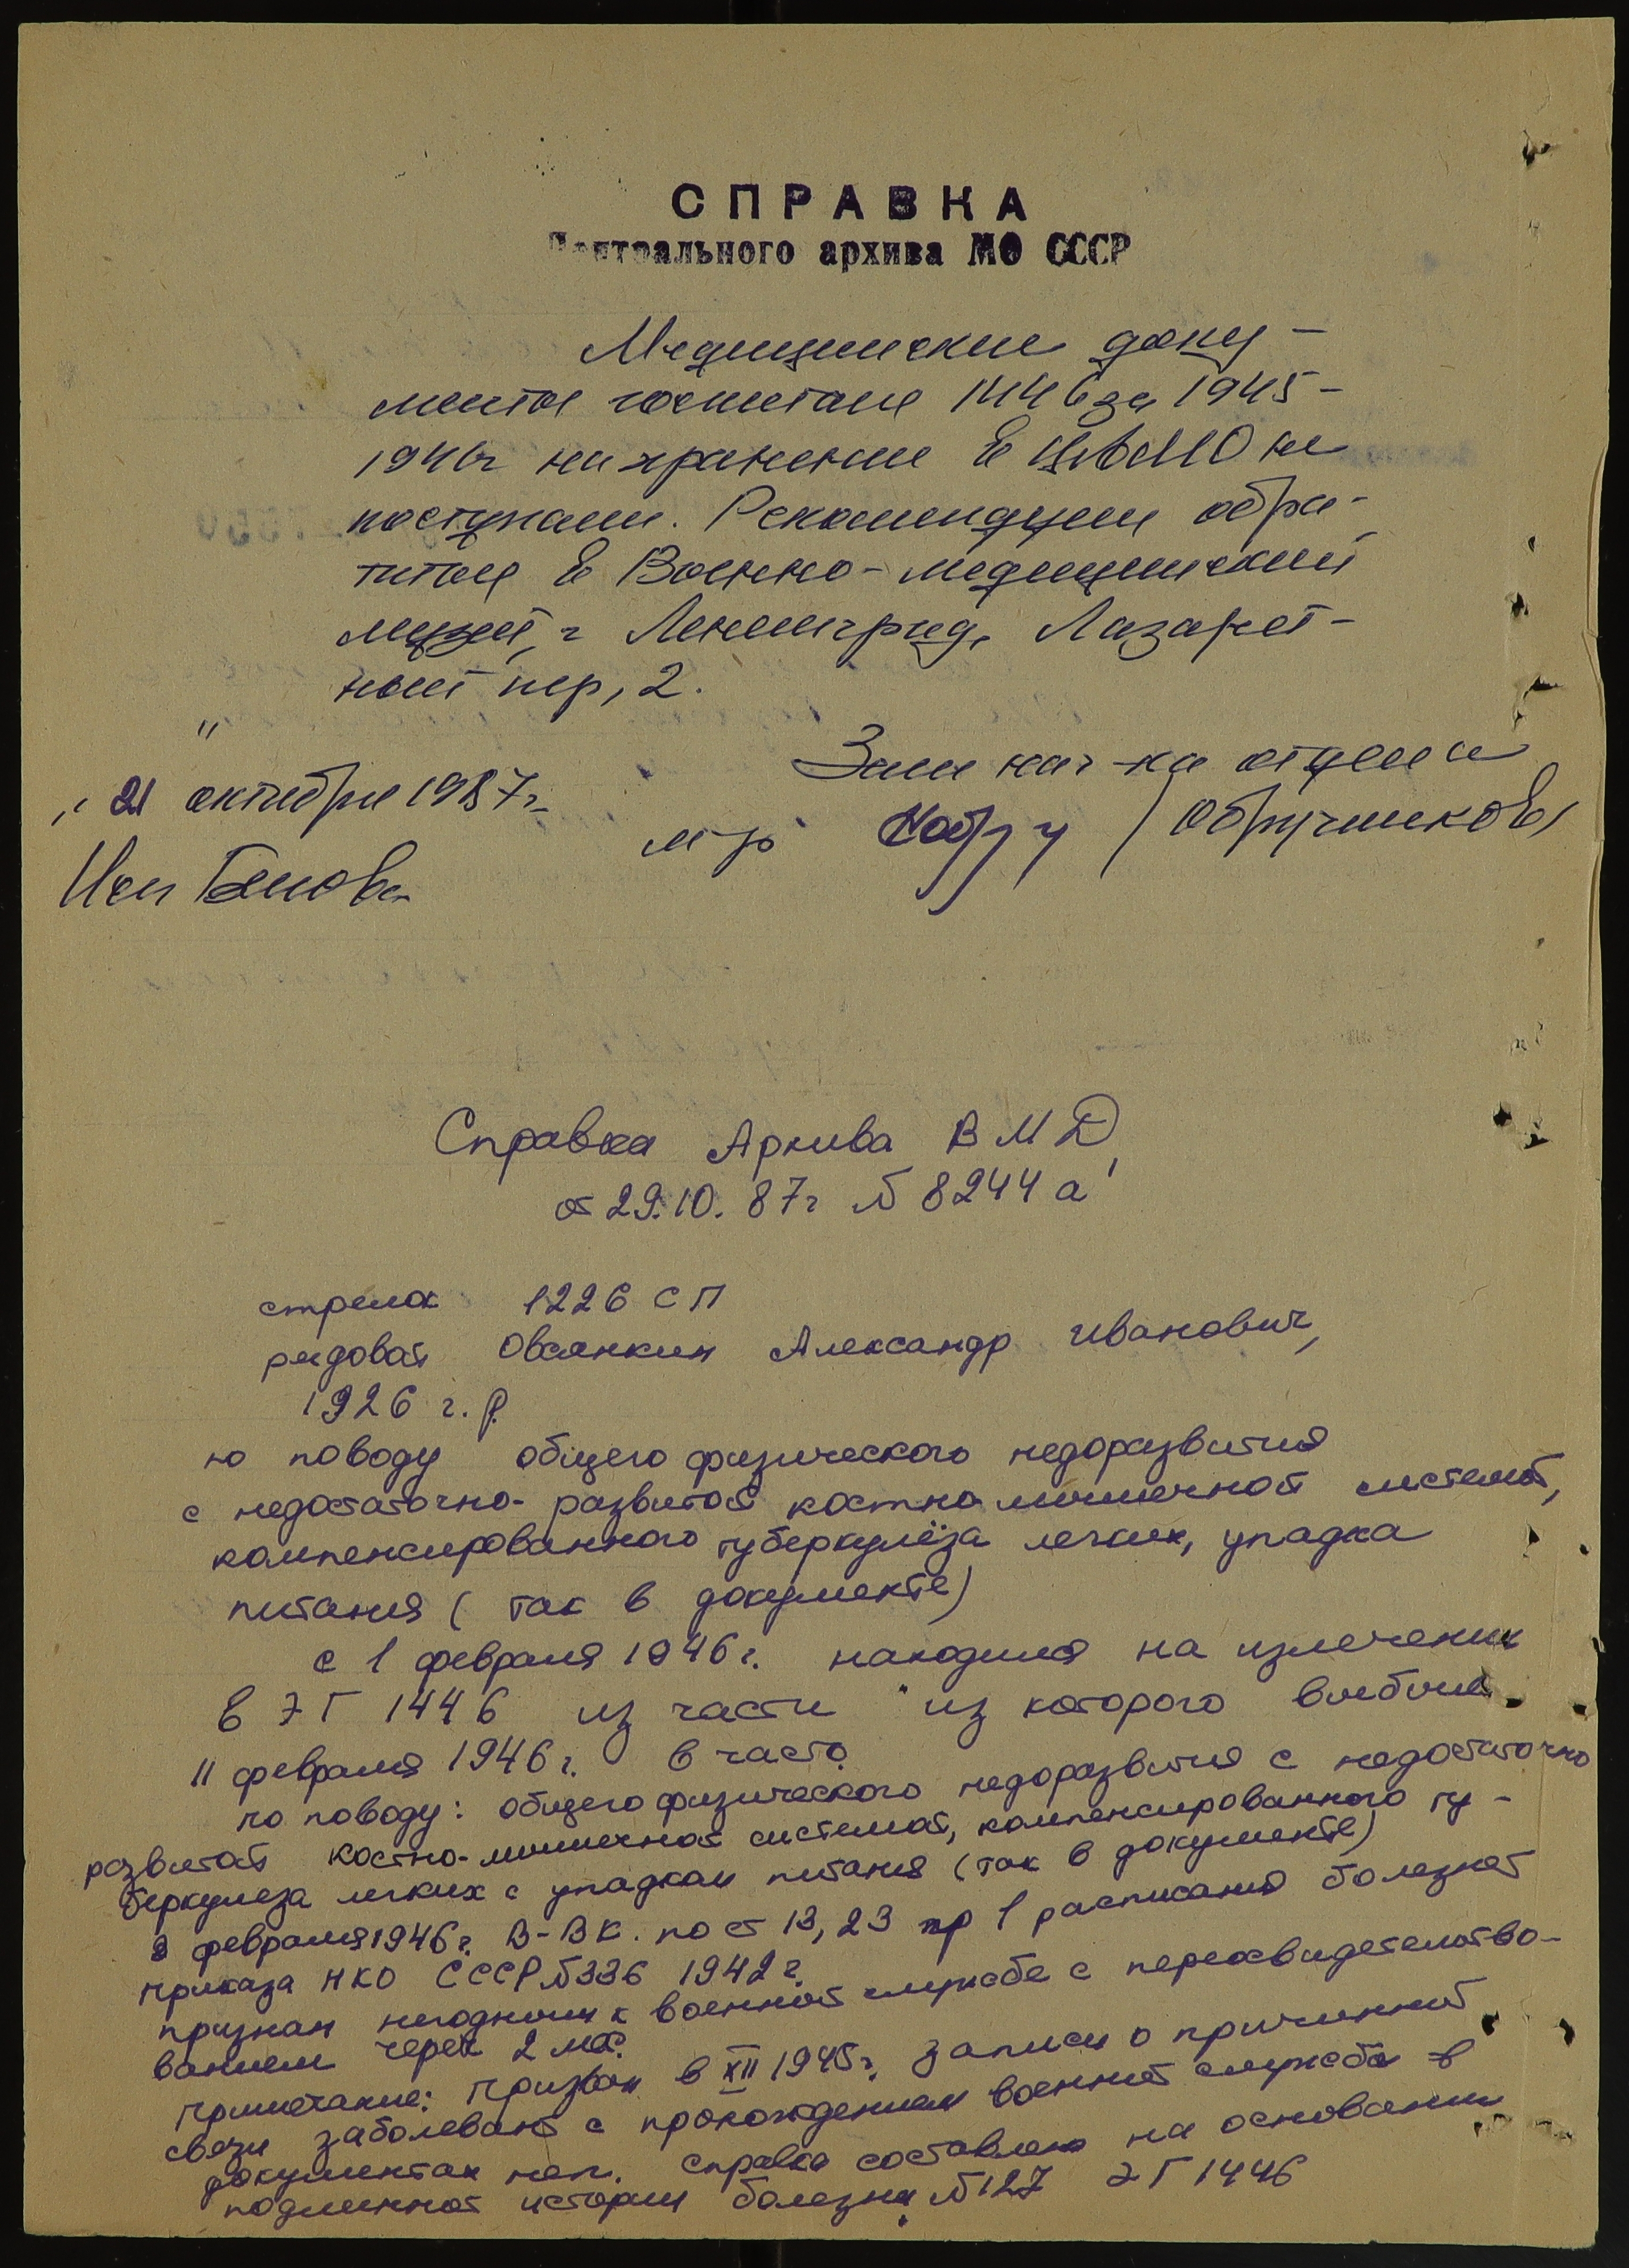 СПРАВКА
Центрального архива МО СССР
Медицинские доку-
менты госпиталя 1446 за 1945-
1946г на хранение в ЦАМО не
поступали. Рекомендуем обра-
титься в Военно-медицинский
музей, г Ленинград, Лазарет-
ный пер, 2.
Зам нач-ка отдела
"21" октября 1987г.
м-р /Обручников/
Исп
Справка Архива ВМД
от 29.10.87г № 8244 а
стрелок 1226 СП
рядовой Овсянкин Александр Иванович,
1926 г.р.
по поводу общего физического недоразвития
с недостаточно-развитой костно мышечной системой,
компенсированного туберкулёза легких, упадка
питания (так в документе)
с 1 февраля 1946г. находился на излечении
в ЭГ 1446 из части из которого выбыл
11 февраля 1946г. в часть.
по поводу: общего физического недоразвития с недостаточно
развитой костно-мышечной системой, компенсированного ту-
беркулеза легких с упадком питания (так в документе)
8 февраля 1946г. В-ВК. по ст 13, 23 гр 1 расписания болезней
приказа НКО СССР №336 1942 г.
признан негодным к военной службе с переосвидетельство-
ванием через 2 мес.
Примечание: призван в XII 1945г. записи о причинной
связи заболеваний с прохождением военной службы в
документах нет. Справка составлена на основании
подлинной истории болезни №127 ЭГ 1446